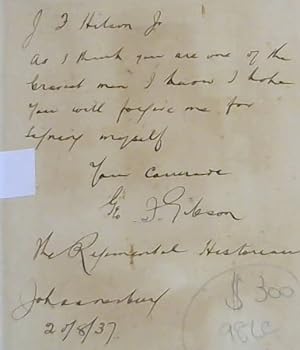 J F Hilson Jr
As I think you are one of the
bravest men I know I hope
You will forgive me for
signing myself
Your Comrade
Geo F. Gibson
The Regimental Historian
Johannesburg
20/8/37
$ 300